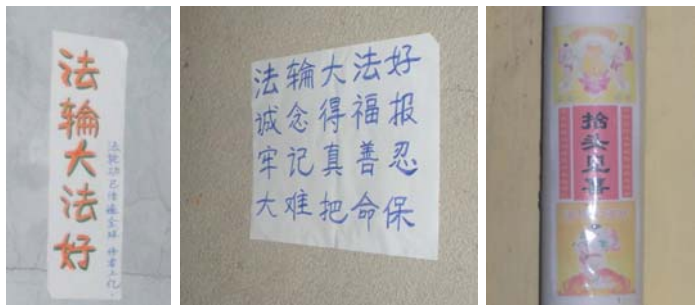 法轮大法好
法轮功已传遍全球
法轮大法好
诚念得福报
牢记真善忍
大难把命保
抬头见喜